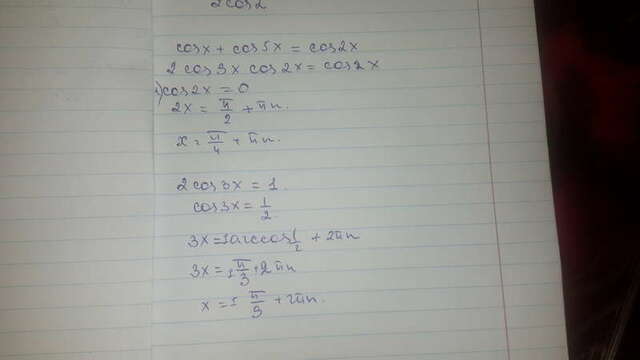 2cos2
cosx + cos5x = cos2x
2cos3x cos2x = cos2x
1) cos2x = 0
2x = π/2 + πn.
x = π/4 + πn.
2cos3x = 1.
cos3x = 1/2
3x = ±arccos 1/2 + 2πn
3x = ± π/3 + 2πn
x = ± π/9 + 2πn.